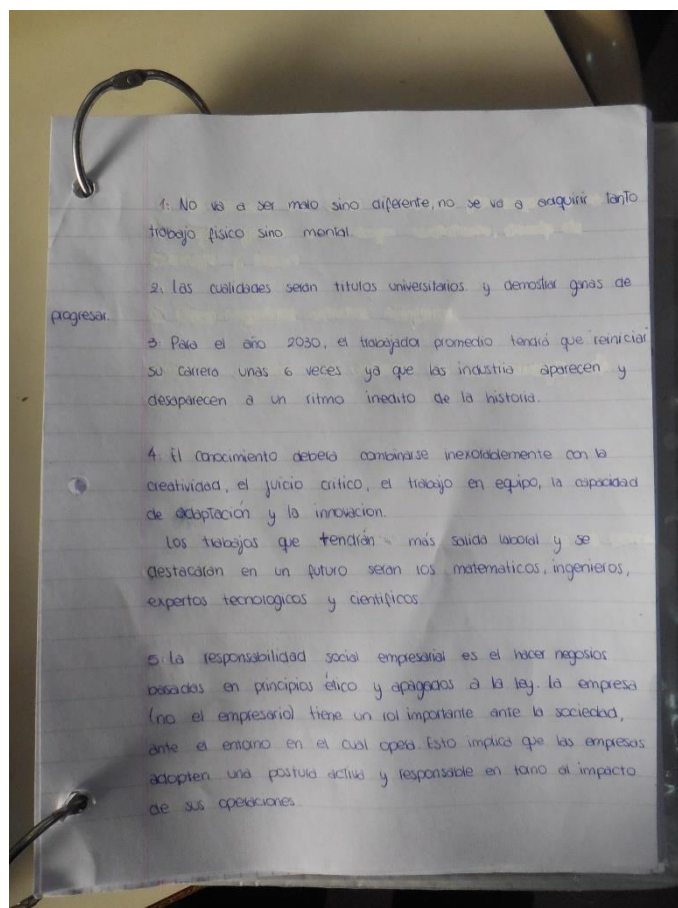 1: No va a ser malo sino diferente, no se va a adquirir tanto
trabajo fisico sino mental.
2: Las cualidades seran titulos universitarios y demostrar ganas de
progresar.
3: Para el año 2030, el trabajador promedio tendrá que reiniciar
su carrera unas 6 veces ya que las industria aparecen y
desaparecen a un ritmo inedito de la historia.
4: El conocimiento deberá combinarse inexorablemente con la
creatividad, el juicio critico, el trabajo en equipo, la capacidad
de adaptación y la innovacion.
Los trabajos que tendrán más salida laboral y se
destacarán en un futuro seran los matematicos, ingenieros,
expertos tecnologicos y cientificos.
5: La responsabilidad social empresarial es el hacer negosios
basadas en principios ético y apagados a la ley. La empresa
(no el empresario) tiene un rol importante ante la sociedad,
ante el entorno en el cual opera. Esto implica que las empresas
adopten una postura activa y responsable en torno al impacto
de sus operaciones.